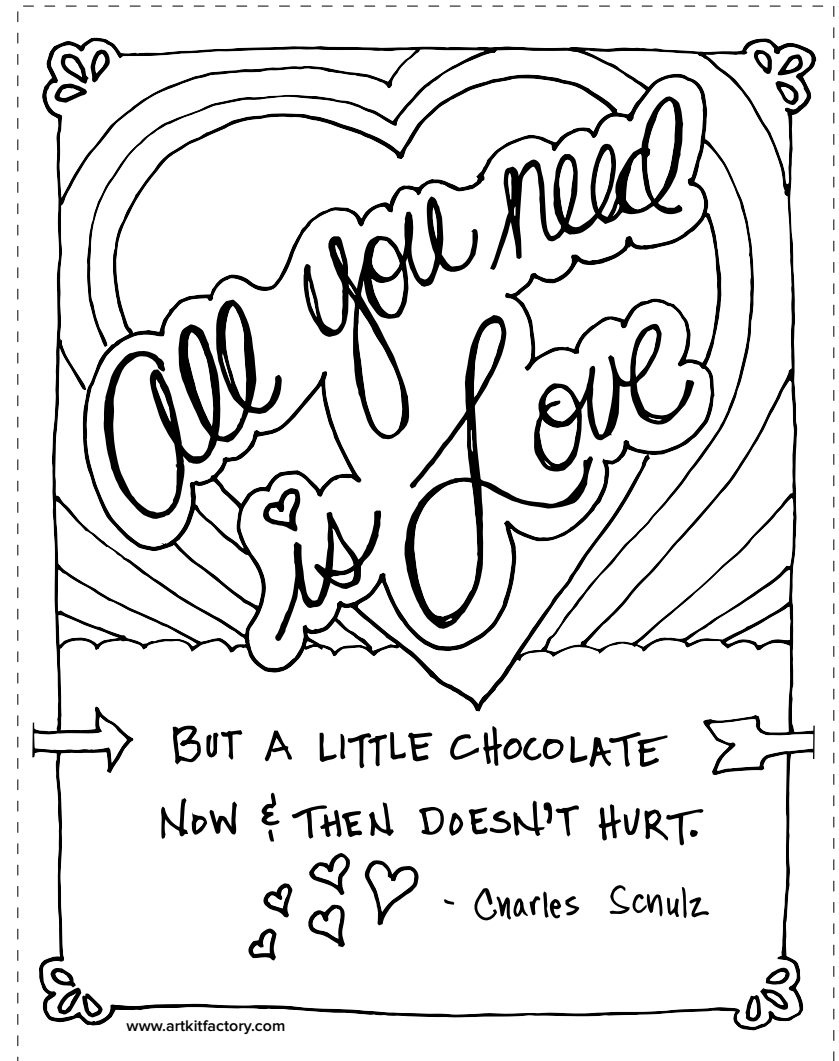 All you need
is Love
BUT A LITTLE CHOCOLATE
NOW & THEN DOESN'T HURT.
- Charles Schulz
www.artkitfactory.com